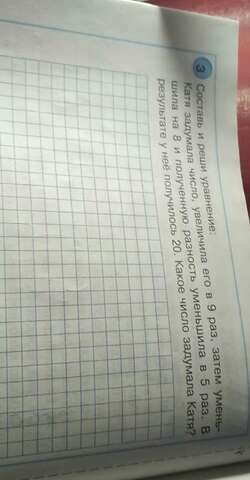 3 Составь и реши уравнение:
Катя задумала число, увеличила его в 9 раз, затем умень-
шила на 8 и полученную разность уменьшила в 5 раз. В
результате у неё получилось 20. Какое число задумала Катя?